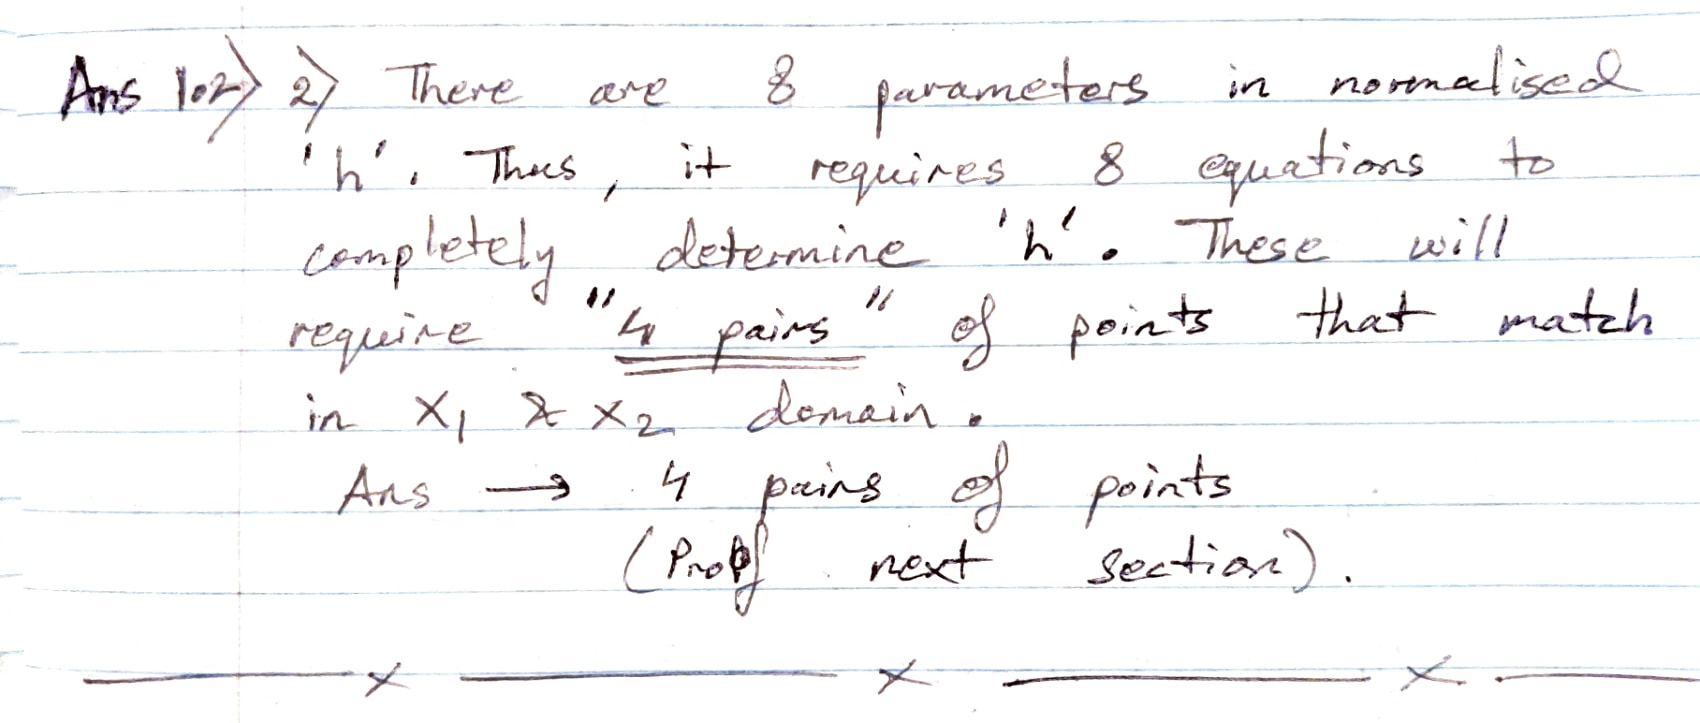 Ans 1.2) 2) There are 8 parameters in normalised
'h'. Thus, it requires 8 equations to
completely determine 'h'. These will
require "4 pairs" of points that match
in x1 & x2 domain.
Ans → 4 pairs of points
(Proof next section).